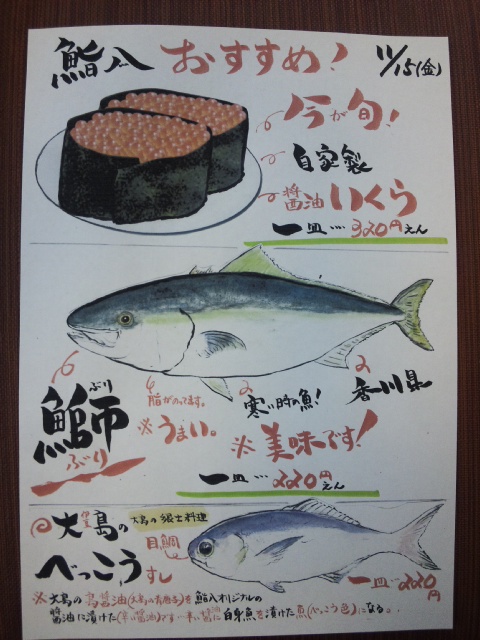 鮨八 おすすめ! 11/15(金)
今が旬!
自家製
醤油いくら
一皿…320円えん
鰤 ぶり
ぶり
脂がのってます。
※うまい。
寒い時の魚!
香川県
※美味です!
一皿…220円えん
大島の 大島の郷土料理
べっこうすし
目鯛
一皿…220円
※大島の島醤油(大島の青唐子)を鮨八オリジナルの
醤油に漬けた(辛い醤油)です…辛い醤油に白身魚を漬けた魚(べっこう色)になる。